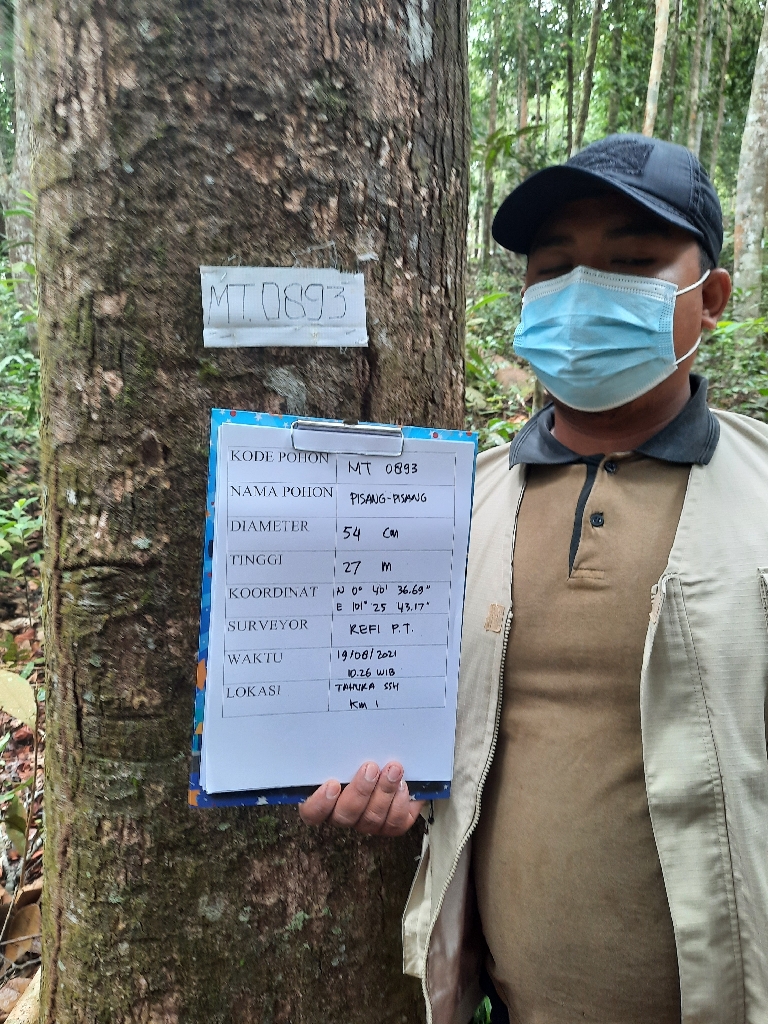 MT. 0893
KODE POHON MT 0893
NAMA POHON PISANG-PISANG
DIAMETER 54 Cm
TINGGI 27 m
KOORDINAT N 0° 40' 36.69"
E 101° 25 43.17"
SURVEYOR REFI P.T.
WAKTU 19/08/2021
10.26 WIB
LOKASI TAHURA SSH
Km 1